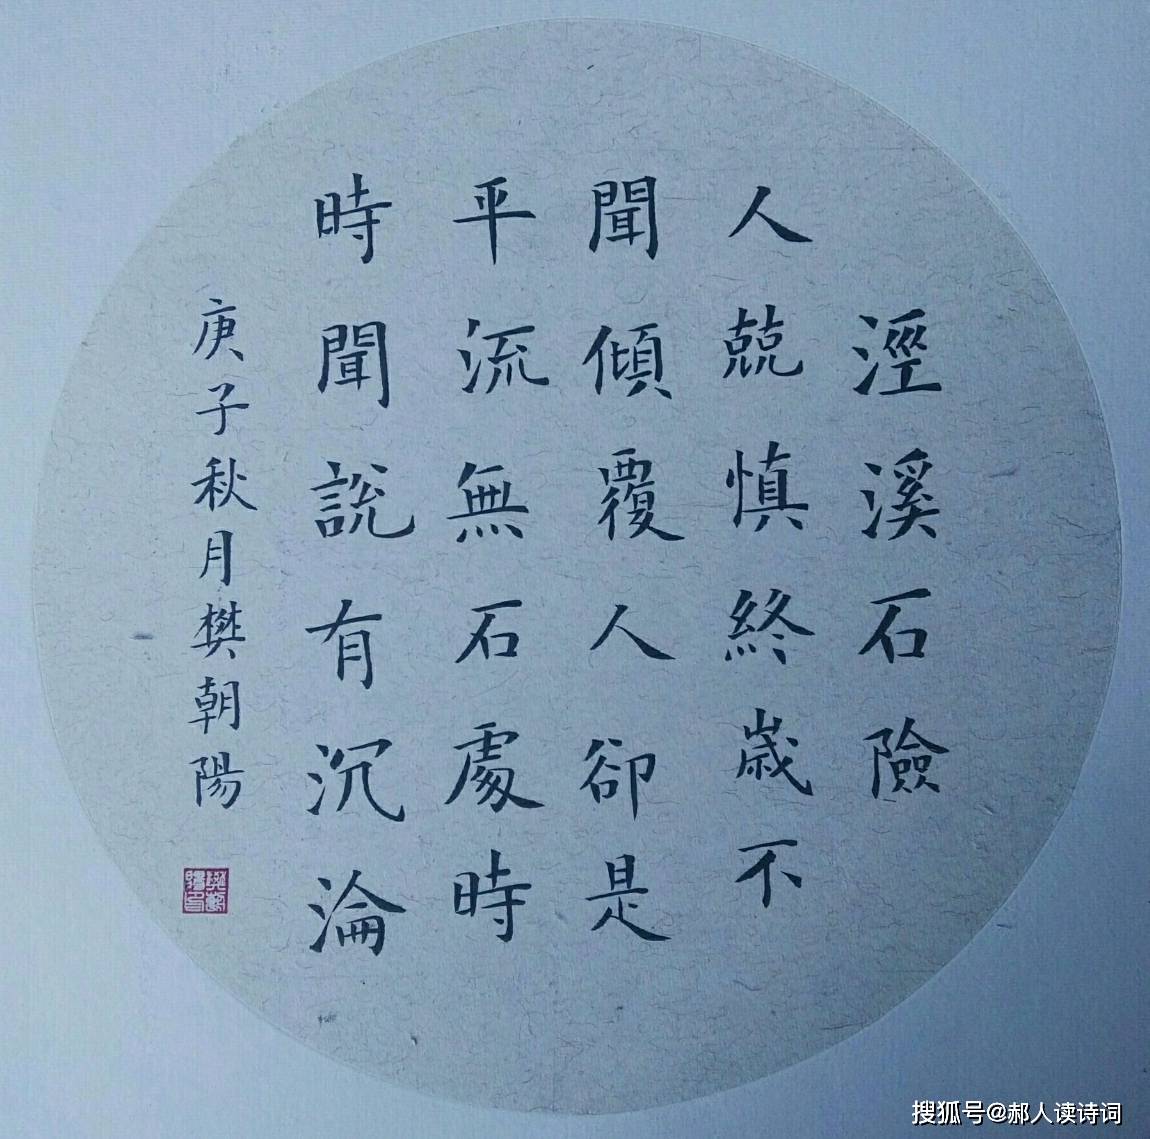 涇溪石險
人兢慎終歲不
聞傾覆人卻是
平流無石處時
時聞說有沉淪
庚子秋月樊朝陽
搜狐号@郝人读诗词